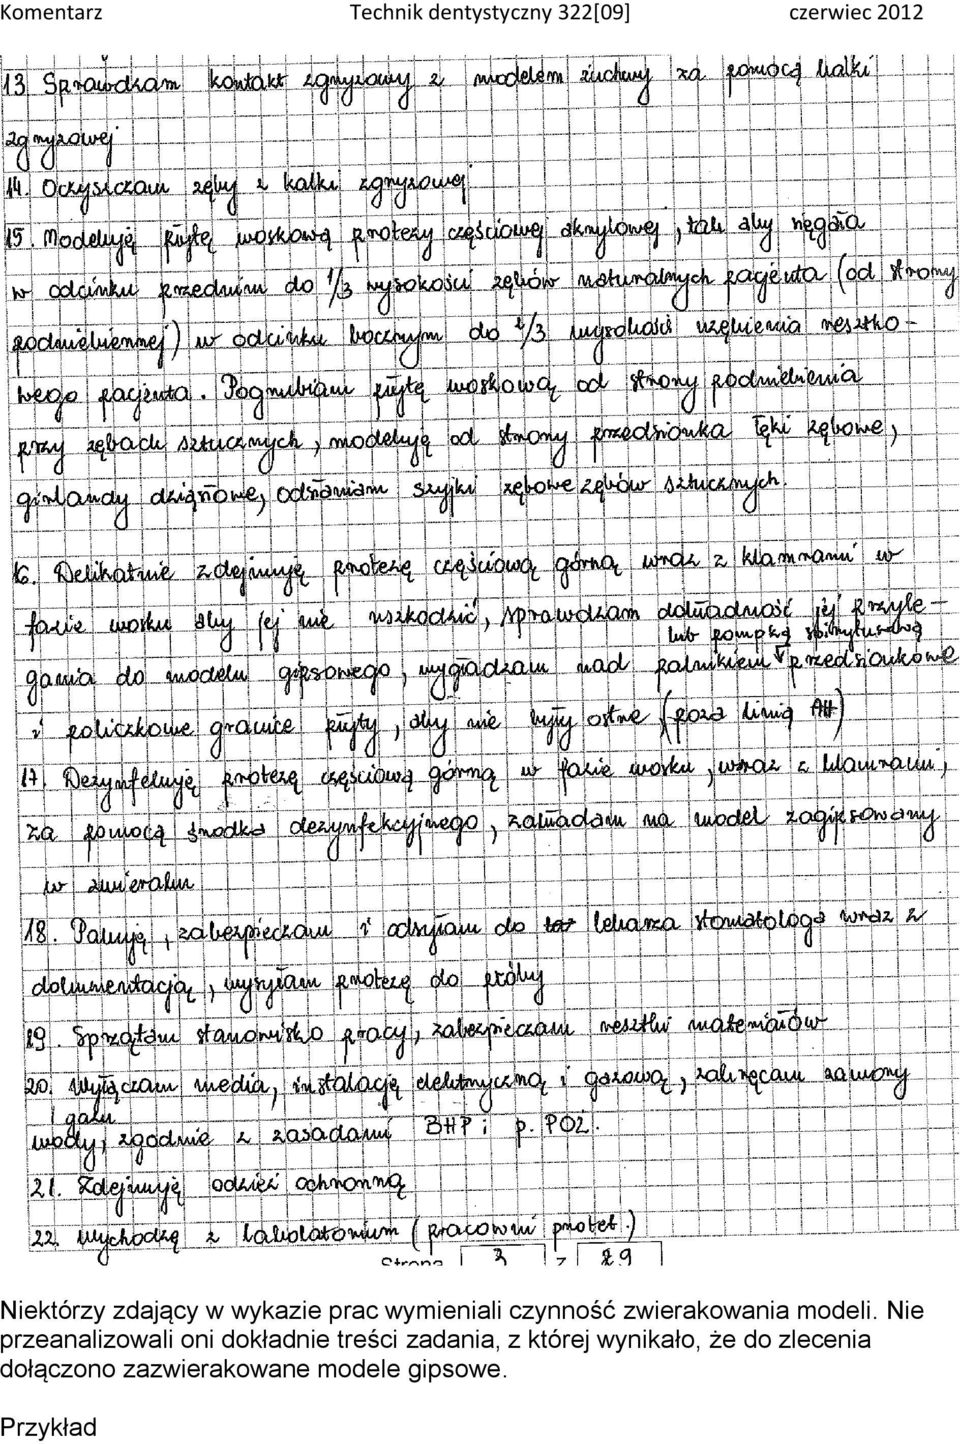 Komentarz Technik dentystyczny 322[09] czerwiec 2012
13. Sprawdzam kontakt zgryzowy z modelem żuchwy za pomocą kalki
zgryzowej
14. Oczyszczam zęby z kalki zgryzowej
15. Modeluję płytę woskową protezy częściowej akrylowej, tak aby
w odcinku przednim do 1/3 wysokości zębów naturalnych pacjenta (od strony
podniebiennej) w odcinku bocznym do 2/3 wysokości uzębienia resztko-
wego pacjenta. Pogrubiam płytę woskową od strony podniebienia
przy zębach sztucznych, modeluję od strony przedsionka łęki zębowe,
girlandy dziąsłowe, odsłaniam szyjki zębowe zębów sztucznych.
16. Delikatnie zdejmuję protezę częściową górną wraz z klamrami w
fazie wosku aby jej nie uszkodzić, sprawdzam dokładność jej przyle-
lub pompką spirytusową
gania do modelu gipsowego, wygładzam nad palnikiem przedsionkowe
i policzkowe granice płyty, aby nie były ostre, (poza linią AH)
17. Dezynfekuję protezę częściową górną w fazie wosku, wraz z klamrami,
za pomocą środka dezynfekcyjnego, zakładam na model zagipsowany
w zwieraku
18. Pakuję, zabezpieczam i odsyłam do lekarza stomatologa wraz z
dokumentacją, wysyłam protezę do próby
19. Sprzątam stanowisko pracy, zabezpieczam resztki materiałów
20. Wyłączam media, instalację elektryczną i gazową, zakręcam zawory
i gazu
wody, zgodnie z zasadami BHP i p. POŻ.
21. Zdejmuję odzież ochronną
22. Wychodzę z labolatorium (pracowni protet.)
Strona 3 z
Niektórzy zdający w wykazie prac wymieniali czynność zwierakowania modeli. Nie
przeanalizowali oni dokładnie treści zadania, z której wynikało, że do zlecenia
dołączono zazwierakowane modele gipsowe.
Przykład